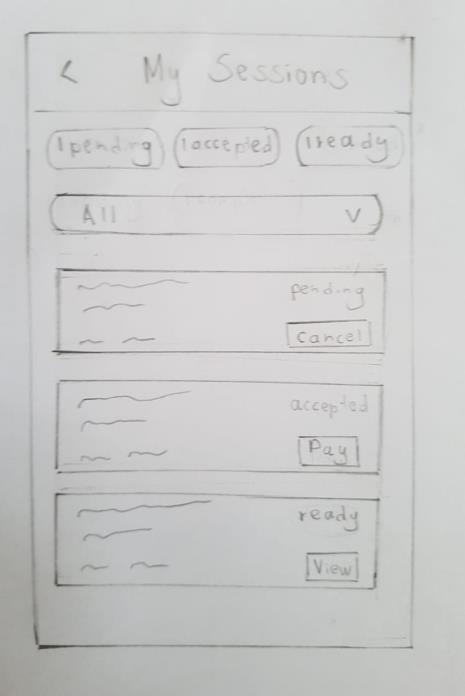 < My Sessions
1 pending 1 accepted 1 ready
All v
pending
Cancel
accepted
Pay
ready
View